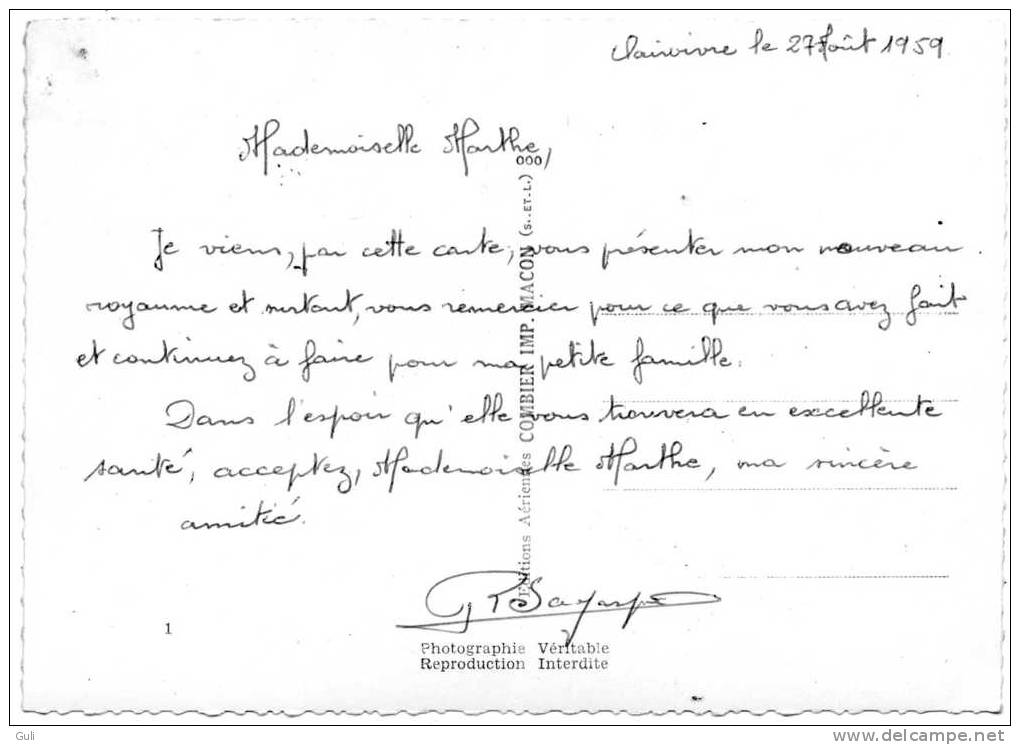 Clairvivre le 27 Août 1959
Mademoiselle Marthe,
Je viens, par cette carte, vous présenter mon nouveau
royaume et surtout, vous remercier pour ce que vous avez fait
et continuez à faire pour ma petite famille.
Dans l'espoir qu'elle vous trouvera en excellente
santé, acceptez, Mademoiselle Marthe, ma sincère
amitié.
Editions Aériennes COMBIER IMP. MACON (S. ET. L.) 000
1
Photographie Véritable
Reproduction Interdite
Guli
www.delcampe.net